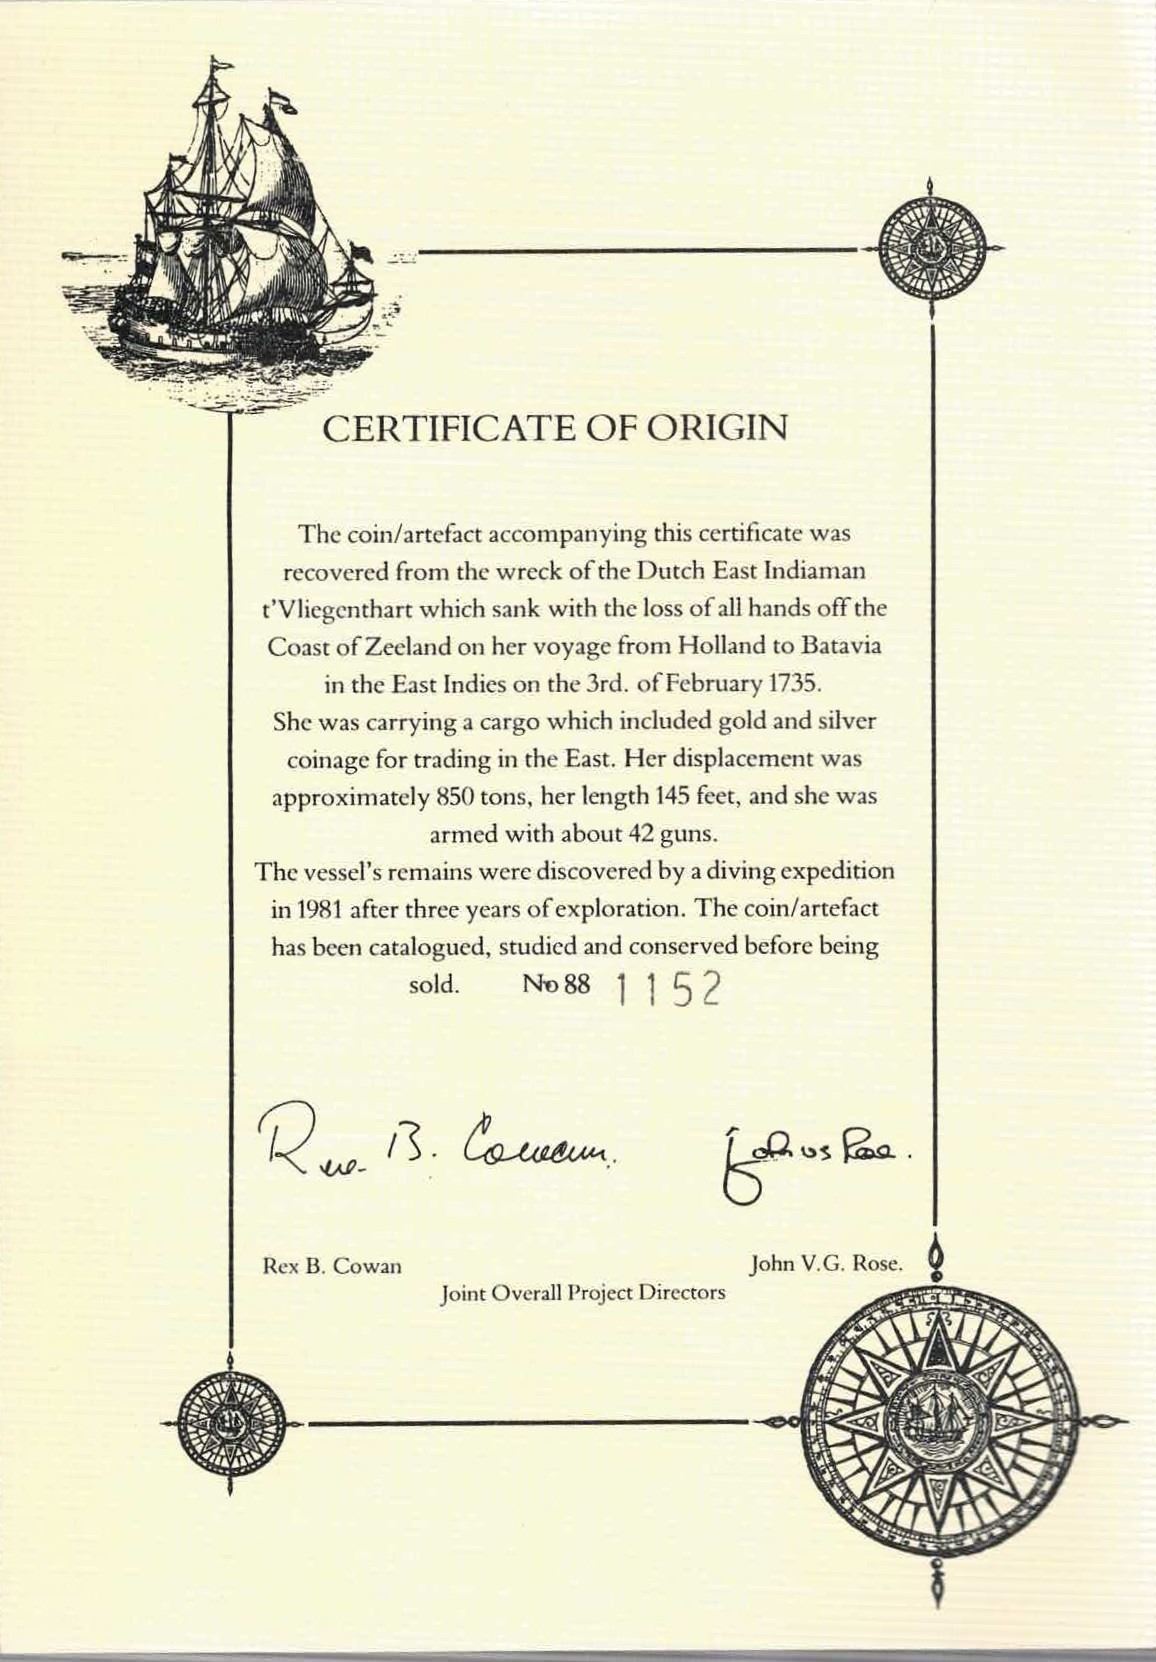 CERTIFICATE OF ORIGIN
The coin/artefact accompanying this certificate was
recovered from the wreck of the Dutch East Indiaman
t'Vliegenthart which sank with the loss of all hands off the
Coast of Zeeland on her voyage from Holland to Batavia
in the East Indies on the 3rd. of February 1735.
She was carrying a cargo which included gold and silver
coinage for trading in the East. Her displacement was
approximately 850 tons, her length 145 feet, and she was
armed with about 42 guns.
The vessel's remains were discovered by a diving expedition
in 1981 after three years of exploration. The coin/artefact
has been catalogued, studied and conserved before being
sold. No 88 1152
Rex B. Cowan. John VG Rose.
Rex B. Cowan John V.G. Rose.
Joint Overall Project Directors